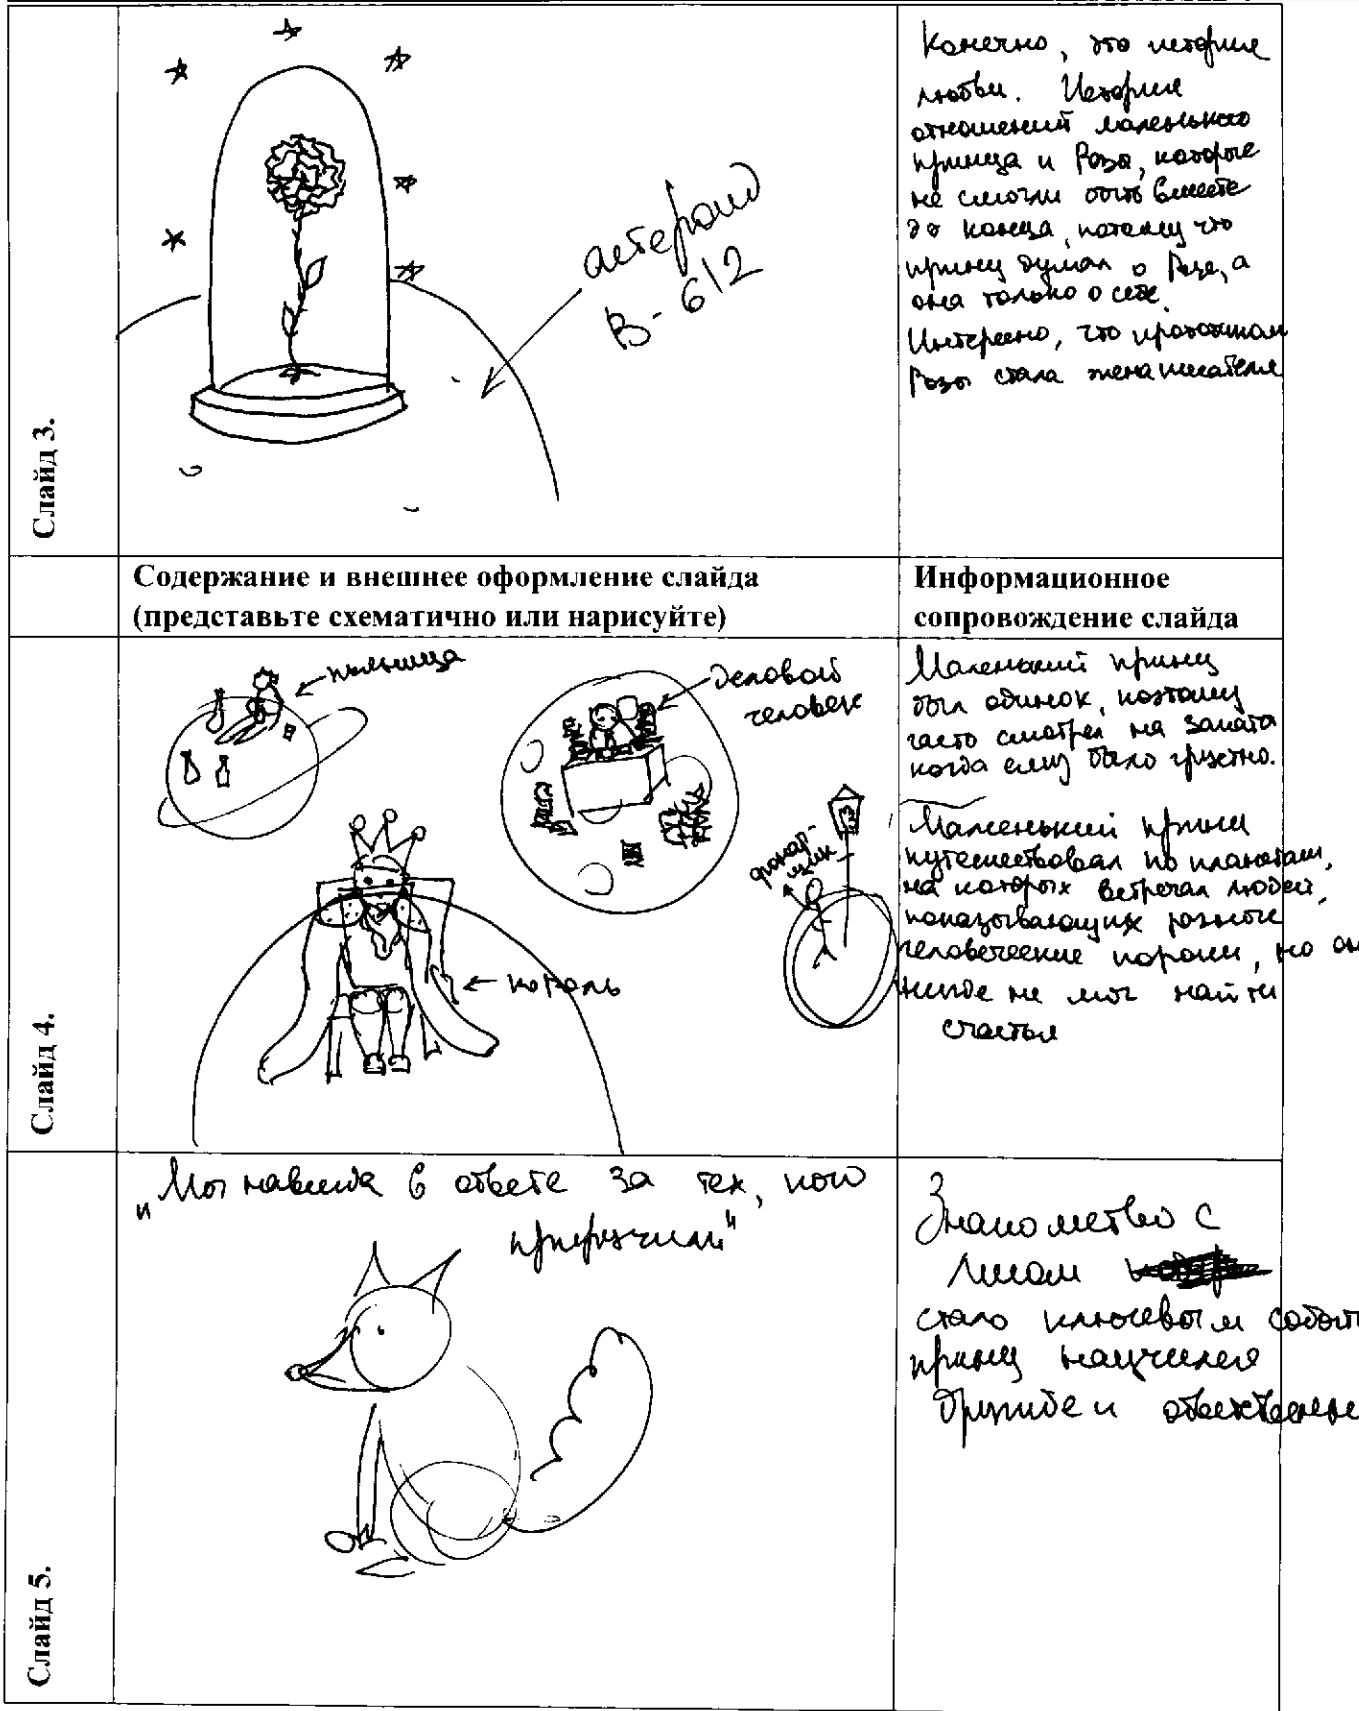 Слайд 3.
астероид
В-612
Конечно, это история
любви. История
отношений маленького
принца и Розы, которые
не смогли быть вместе
до конца, потому что
принц думал о Розе, а
она только о себе.
Интересно, что прототипом
Розы стала жена писателя
Содержание и внешнее оформление слайда
(представьте схематично или нарисуйте)
Информационное
сопровождение слайда
Слайд 4.
пьяница
деловой
человек
фонар-
щик
король
Маленький принц
был одинок, поэтому
часто смотрел на заката
когда ему было грустно.
Маленький принц
путешествовал по планетам,
на которых встречал людей,
показывающих разные
человеческие пороки, но он
нигде не мог найти
счастья
Слайд 5.
"Мы навсегда в ответе за тех, кого
приручили"
Знакомство с
Лисом
стало ключевым событ
принц научился
дружбе и ответственн